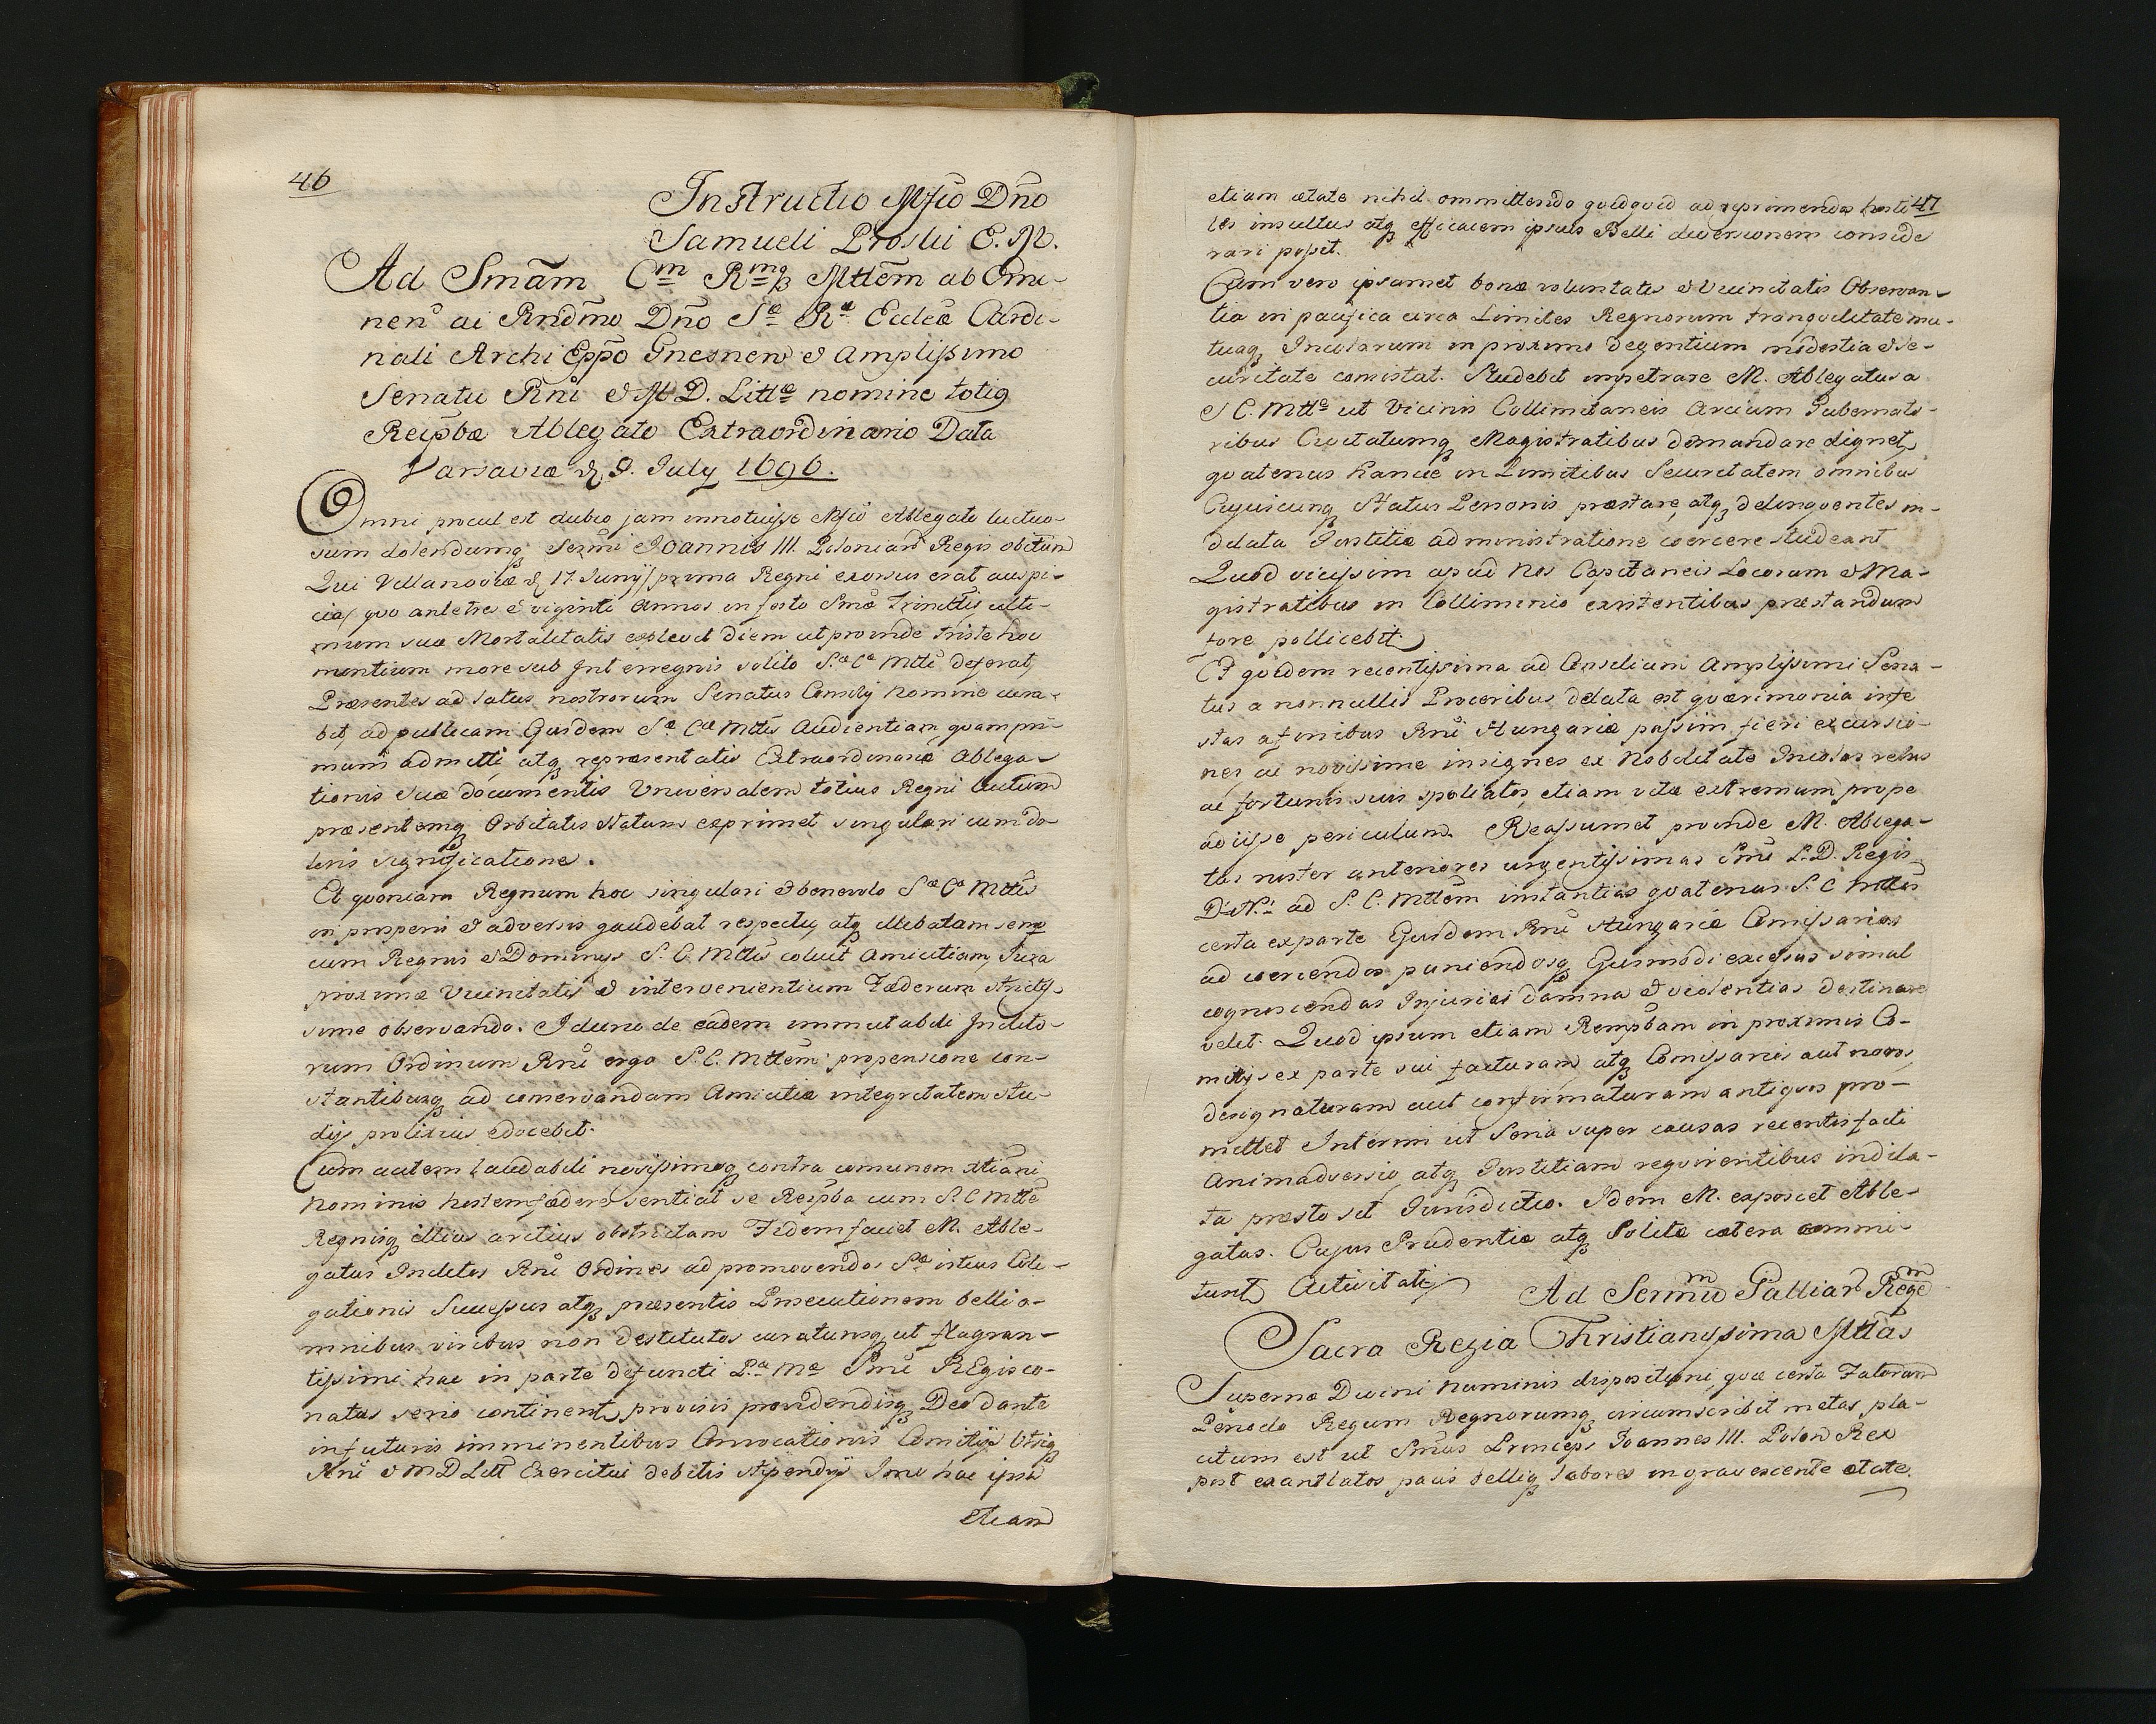 46
Instructio Mfco Dno
Samueli Proski E. M.
Ad Smam Cm Rmq Mttem ab Emi-
nen ac Rndmo Dno Sæ Ræ Eccleæ Cardi-
nali Archi Eppo Gnesnen & Amplissimo
Senatu Rni & M D. Littæ nomine totiq
Reipbæ Ablegato Extraordinario Data
Varsaviæ d. 9. July 1696.
Omni procul est dubio jam innotuisse Mfco Ablegato luctuo-
sum dolendumq Serzmi Joannis III. Poloniar Regis obitum
Qui Villanoviæ d 17. Junij prima Regni exorsus erat auspi-
cia quo ante tres & viginti Annos in festo Smæ Trinittis ulti-
mum suæ Mortalitatis explevit diem ut proinde triste hoc
nuntium more sub Interregnis solito S.æ Cæ Mtti deferat,
Præsentes ad latus nostrorum Senatus Consilij Nomine cura-
bit, ad publicam Eiusdem Sæ Cæ Mttis Audientiam quam pri-
mum admitti, atq repræsentatis Extraordinariæ Ablega-
tionis suæ documentis Universalem totius Regni luctum
præsentemq Orbitatis statum exprimet singulari cum do-
loris significatione.
Et quoniam Regnum hoc singulari & benevolo Sæ Cæ Mttis
in prosperis & adversis gaudebat respectu, atq illibatam semp
cum Regnis & Dominys S. C. Mttis coluit Amicitiam, Jura
proximæ Vicinitatis & intervenientium Fæderum strictis-
sime observando. Iduno de eadem immutabili Inclito-
rum Ordinum Rni erga S. C. Mttem propensione con-
stantibusq ad conservandam Amicitiæ integritatem stu-
dijs prolixius edocebit.
Cum autem laudabili novissimoq contra comunem Xtiani
Nominis hostem fædere sentiat se Reipba cum S. C Mtte
Regnisq illius arctius obstrictam Fidem faciet M. Able-
gatus Inclitos Rni Ordines ad promovendos Sæ istius Coli-
gationis Successus atq præsentis Prosecutionem belli o-
mnibus viribus non destitutos curaturosq ut flagran-
tissimi hac in parte defuncti P.æ Mæ Smi REgis co-
natus serio continent, provisis providendisq Deo dante
in futuris imminentibus Convocationis Comitijs Utriq
Rni & M D Litt Exercitui debitis stipendijs Imo hac ipsa
etiam
etiam ætate nihil ommittendo quidquid ad reprimendos hosti 47
les insultus atq efficacem ipsius Belli diversionem conside
rari possit.
Cum vero ipsamet bonæ voluntatis & Vicinitatis Observan-
tia in pacifica circa Limites Regnorum tranquilitate mu-
tuaq Incolarum in proximo degentium modestia & se-
curitate consistat. Studebit impetrare M. Ablegatus a
S C. Mtte ut Vicinis Collimitaneis Arcium Gubernato-
ribus Civitatumq Magistratibus demandare dignet,
quatenus hancce in Limitibus Securitatem omnibus
Cujuscunq Status Personis præstare, atq delinquentes in-
dilata Justitiæ administratione coercere studeant
Quod vicissim apud Nos Capitaneis Locorum & Ma-
gistratibus in Colliminio existentibus præstandum
fore pollicebit.
Et quidem recentissima ad Consilium Amplissimi Sena-
tus a nonnullis Proceribus delata est quærimonia infe
stas a finibus Rni Hungariæ passim fieri excursio-
nes, ac novissime insignes ex Nobilitate Incolas rebus
ac fortunis suis spoliatos, etiam vitæ extremum prope
adiisse periculum. Reassumet proinde M. Ablega-
tus noster anteriores urgentissimas Smi P. D. Regis
D. N. ad S. C. Mttem instantias quatenus S. C Mttas
certa ex parte Eiusdem Rni Hungariæ Comissarios
ad coercendos puniendosq Eiusmodi excessus simul
cognoscendas Injurias damna & violentias destinare
velit. Quod ipsum etiam Rempbam in proximis Co-
mitijs ex parte sui facturam, atq Comissarios aut novos
designaturam aut confirmaturam antiquos pro-
mittet Interim ut Seria super causas recentis facti
Animadversio, atq Justitiam requirentibus indila-
ta præsto sit Jurisdictio. Idem M. exposcet Able-
gatus. Cujus Prudentiæ atq Solitæ cætera commi-
tunt Activitati
Ad Sermu Galliar Regem
Sacra Regia Christianissima Mttas
Supernæ Divini Numinis dispositioni, quæ certa Fatorum
Periodo Regum Regnorumq circumscribit metas, pla-
citum est ut Smus Princeps Joannes III. Polon Rex
post exantlatos pacis belliq labores ingravescente ætate.